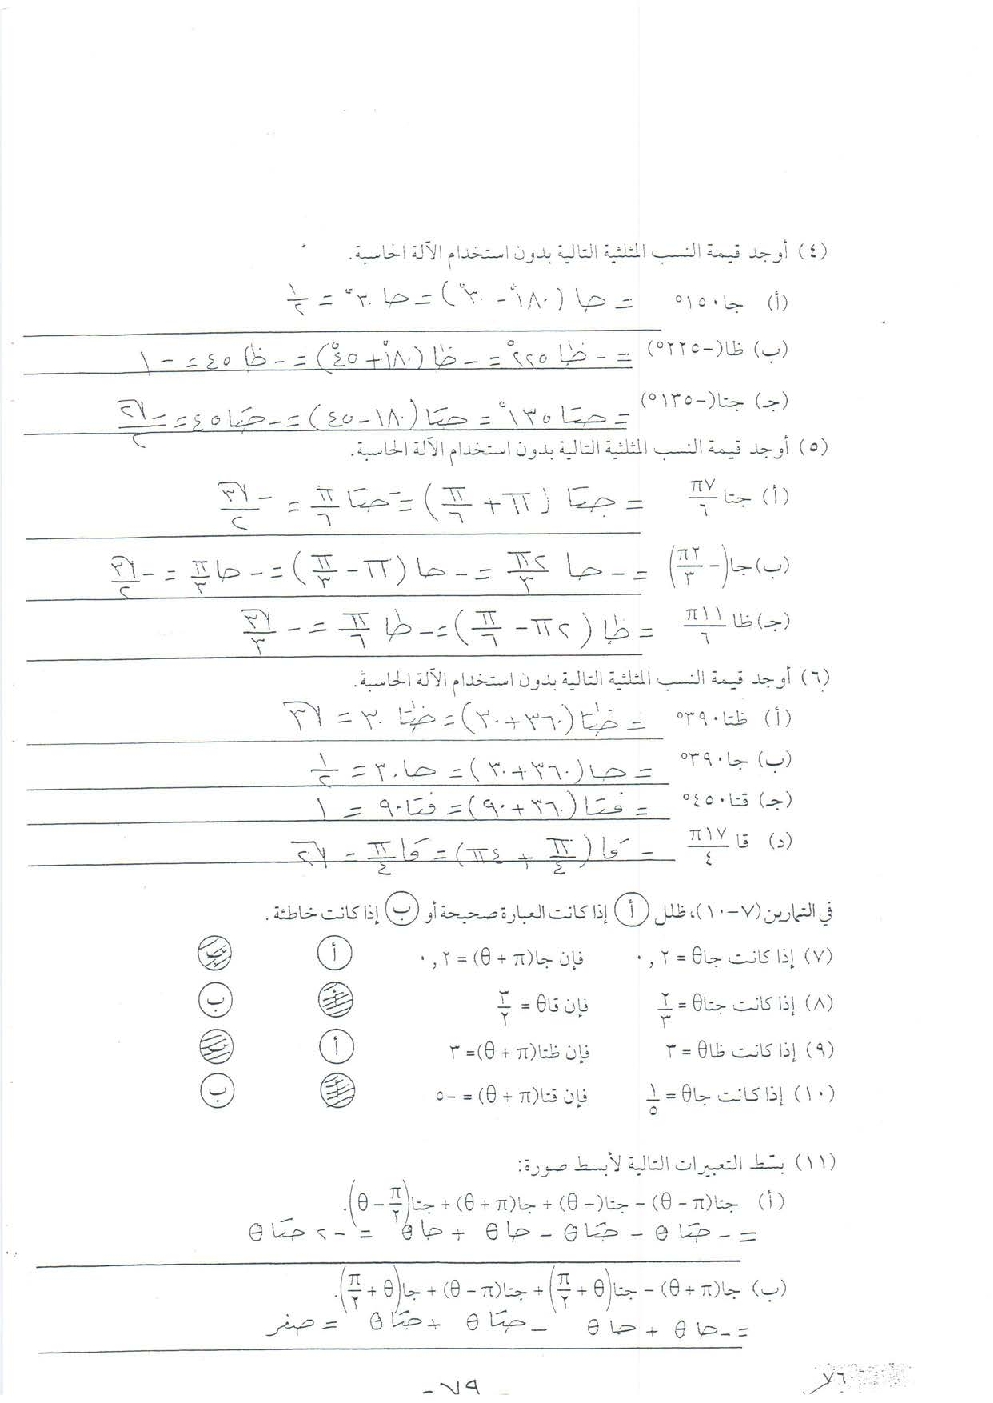 (٤) أوجد قيمة النسب المثلثية التالية بدون استخدام الآلة الحاسبة.
(أ) جا١٥٠° = جا (١٨٠° - ٣٠°) = جا ٣٠° = ١/٢
(ب) ظا(-٢٢٥°) = - ظا ٢٢٥° = - ظا (١٨٠° + ٤٥°) = - ظا ٤٥ = - ١
(جـ) جتا(-١٣٥°) = جتا ١٣٥° = جتا (١٨٠ - ٤٥) = - جتا ٤٥ = - √٢/٢
(٥) أوجد قيمة النسب المثلثية التالية بدون استخدام الآلة الحاسبة.
(أ) جتا ٧π/٦ = جتا (π + π/٦) = - جتا π/٦ = - √٣/٢
(ب) جا(- ٢π/٣) = - جا ٢π/٣ = - جا (π - π/٣) = - جا π/٣ = - √٣/٢
(جـ) ظا ١١π/٦ = ظا (٢π - π/٦) = - ظا π/٦ = - √٣/٣
(٦) أوجد قيمة النسب المثلثية التالية بدون استخدام الآلة الحاسبة.
(أ) ظتا٣٩٠° = ظتا (٣٦٠ + ٣٠) = ظتا ٣٠ = √٣
(ب) جا٣٩٠° = جا (٣٦٠ + ٣٠) = جا ٣٠ = ١/٢
(جـ) قتا٤٥٠° = قتا (٣٦٠ + ٩٠) = قتا ٩٠ = ١
(د) قا ١٧π/٤ = قا (π/٤ + ٤π) = قا π/٤ = √٢
في التمارين (٧-١٠)، ظلل أ إذا كانت العبارة صحيحة أو ب إذا كانت خاطئة.
(٧) إذا كانت جاθ = ٠,٢ فإن جا(θ + π) = ٠,٢ أ ب
(٨) إذا كانت جتاθ = ٢/٣ فإن قاθ = ٣/٢ أ ب
(٩) إذا كانت ظاθ = ٣ فإن ظتا(θ + π) = ٣ أ ب
(١٠) إذا كانت جاθ = ١/٥ فإن قتا(θ + π) = -٥ أ ب
(١١) بسّط التعبيرات التالية لأبسط صورة:
(أ) جتا(θ - π) - جتا(-θ) + جا(θ + π) + جتا(π/٢ - θ).
= - جتا θ - جتا θ - جا θ + جا θ = - ٢ جتا θ
(ب) جا(θ + π) - جتا(θ + π/٢) + جتا(θ - π) + جا(θ + π/٢).
= - جا θ + جا θ - جتا θ + جتا θ = صفر
٧٦
- ٧٩ -